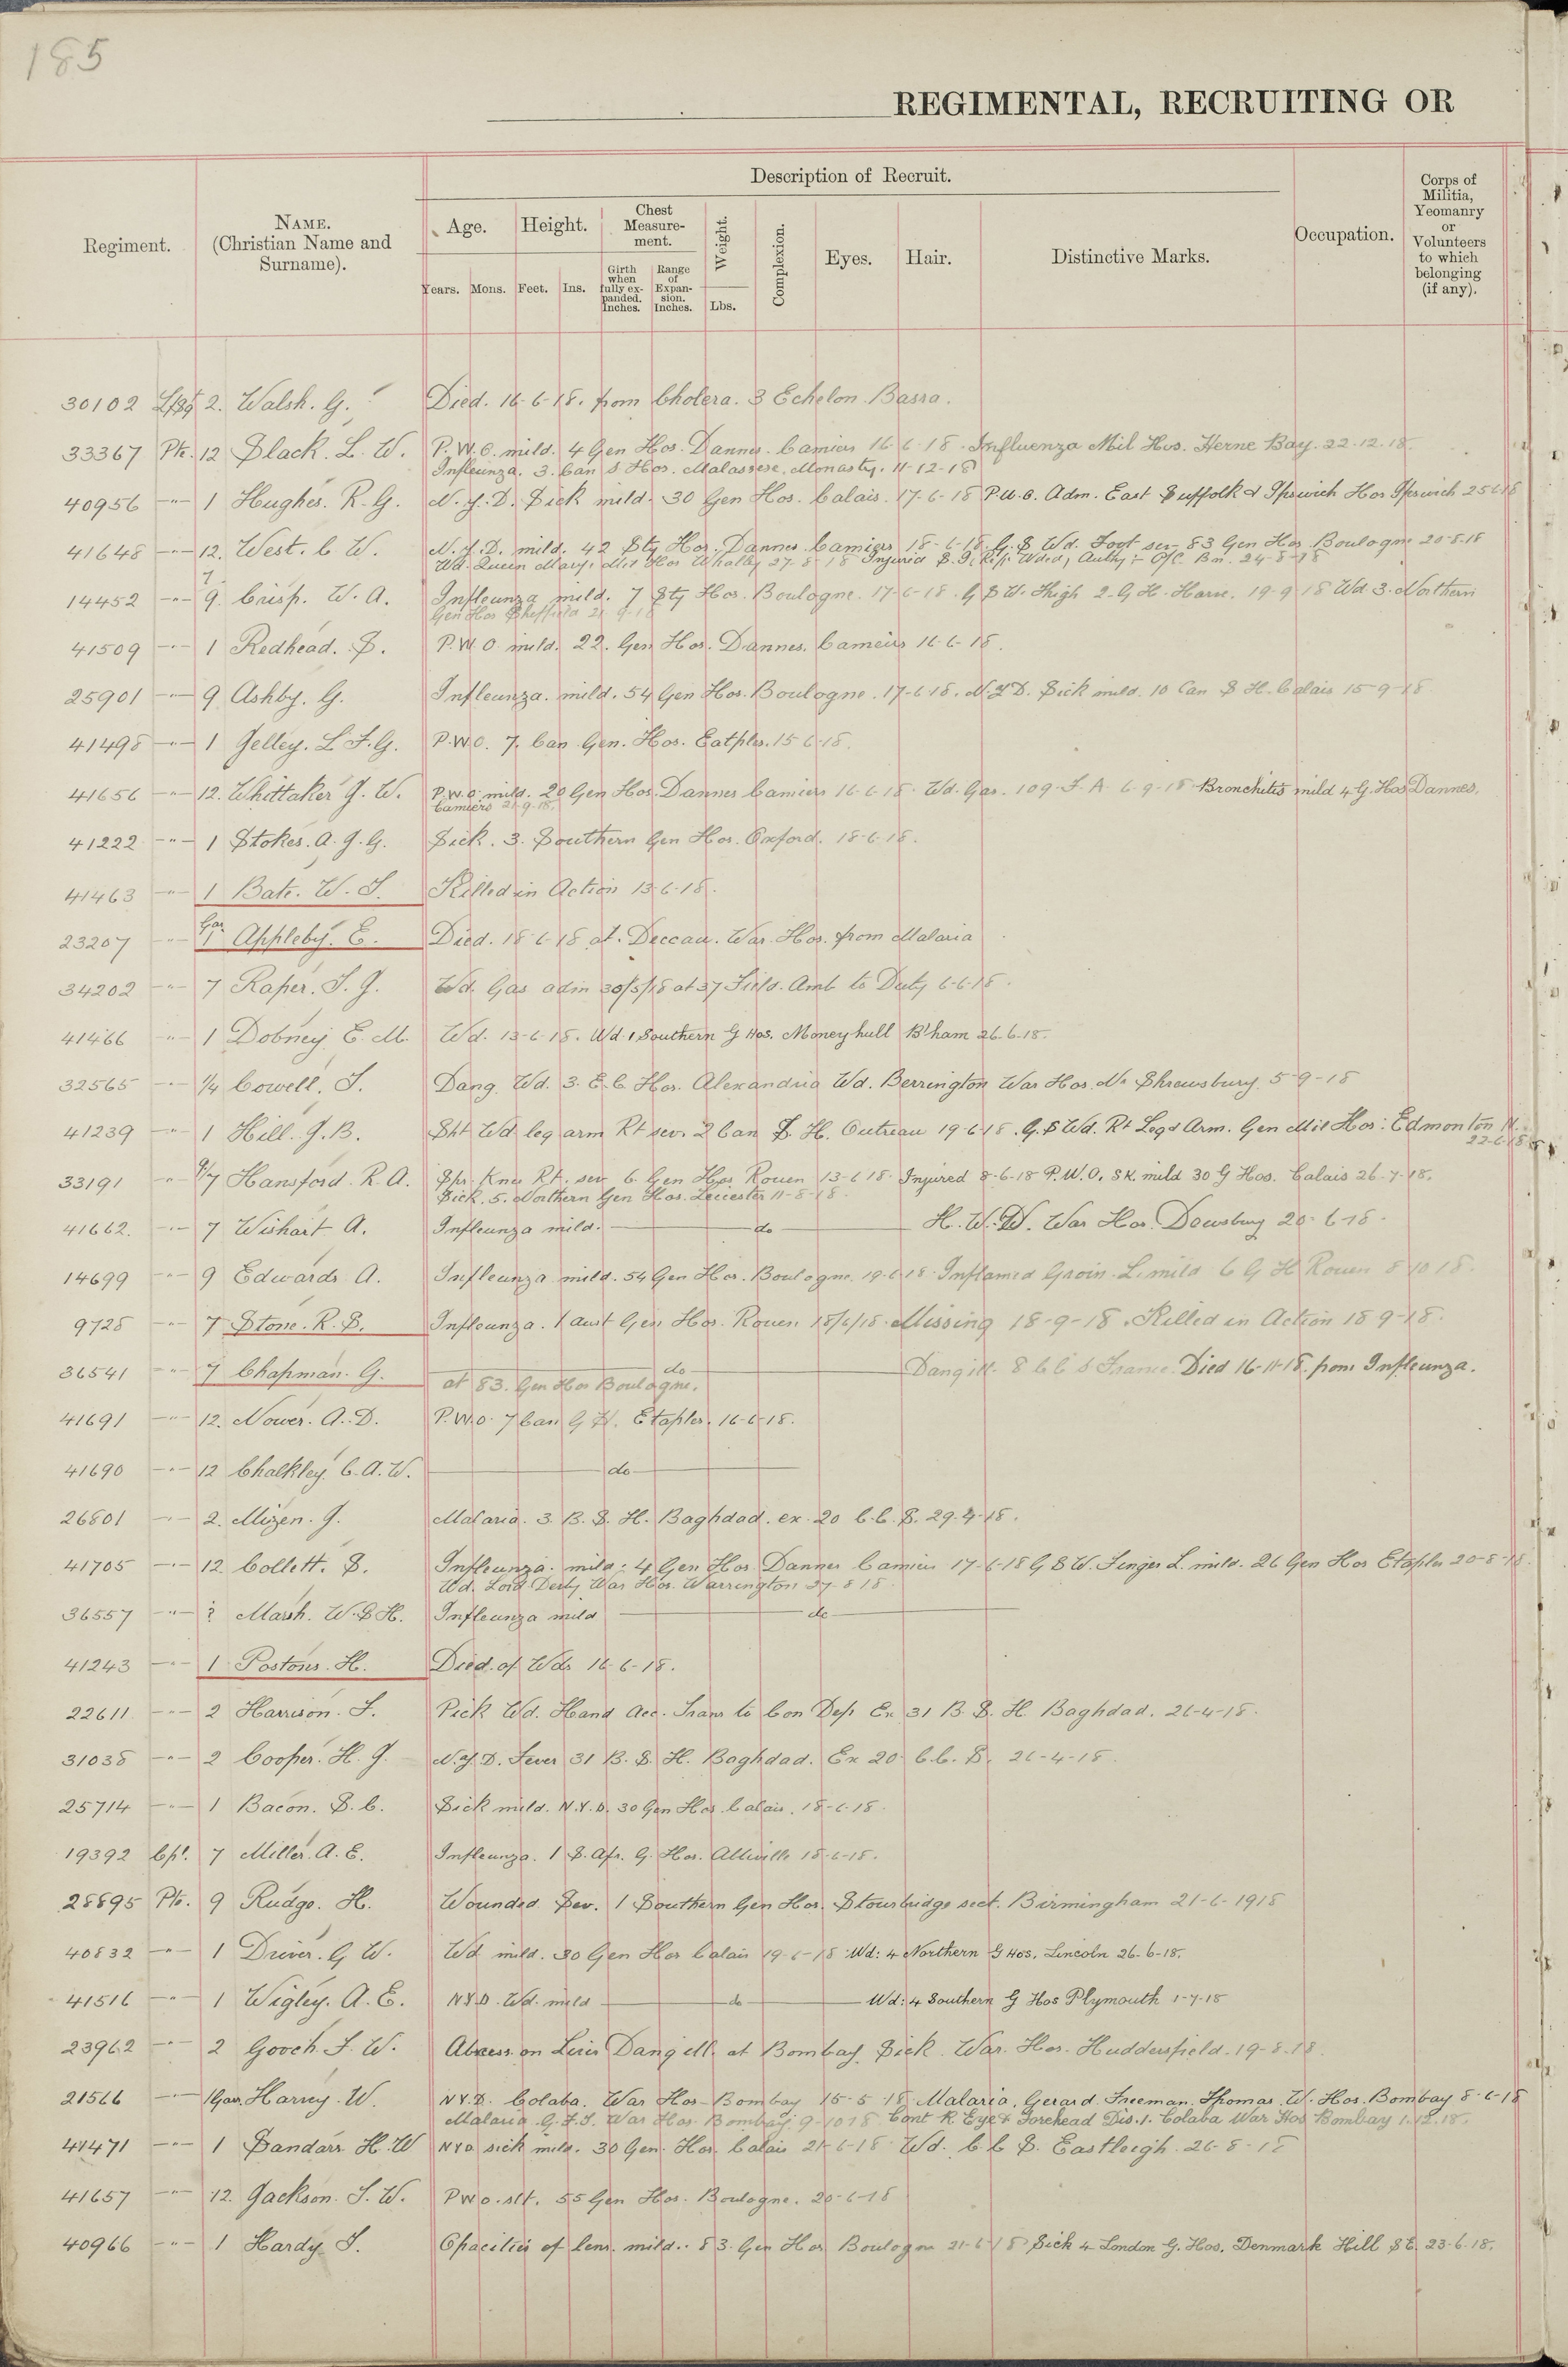 185
REGIMENTAL, RECRUITING OR
Regiment.
NAME.
(Christian Name and
Surname).
Description of Recruit.
Age.
Height.
Chest
Measure-
ment.
Weight.
Complexion.
Eyes.
Hair.
Distinctive Marks.
Occupation.
Corps of
Militia,
Yeomanry
or
Volunteers
to which
belonging
(if any).
Years. Mons. Feet. Ins.
Girth
when
fully ex-
panded.
Inches.
Range
of
Expan-
sion.
Inches.
Lbs.
30102 L/Sgt 2. Walsh. G. Died. 16-6-18. from Cholera. 3 Echelon Basra.
33367 Pte. 12 Slack. L. W. P.W.O. mild. 4 Gen Hos. Dannes. Camiers 16-6-18. Influenza Mil Hos. Herne Bay. 22-12-18.
Infleunza. 3. Can S Hos. Malassese, Monasty. 11-12-18
40956 -"- 1 Hughes. R. G. N.Y.D. Sick mild. 30 Gen Hos. Calais. 17-6-18 P.U.O. Adm. East Suffolk & Ipswich Hos Ipswich 25618
41648 -"- 12. West. C. W. N.Y.D. mild. 42 Sty Hos. Dannes Camiers 18-6-18. G.S Wd. Foot sev- 83 Gen Hos Boulogne 20-8-18
Wd. Queen Mary's Mil Hos Whalley 27-8-18 Injured Wded, Authy:- O/C. Bn. 24-8-18
14452 -"- 9. Crisp. W. A. Infleunza mild. 7 Sty Hos. Boulogne. 17-6-18. G S W. Thigh 2 G H. Havre. 19-9-18 Wd 3. Northern
Gen Hos Sheffield 21-9-18
41509 -"- 1 Redhead. S. P.W.O mild. 22. Gen Hos. Dannes. Cameirs 16-6-18.
25901 -"- 9 Ashby. G. Infleunza. mild. 54 Gen Hos. Boulogne. 17-6-18. N.Y.D. Sick mild. 10 Can S H. Calais 15-9-18
41498 -"- 1 Jelley. L. F. G. P.W.O. 7. Can Gen. Hos. Eatples. 15-6-18.
41656 -"- 12. Whittaker J. W. P.W.O. mild. 20 Gen Hos. Dannes Camiers 16-6-18. Wd. Gas. 109-F. A 6-9-18 Bronchites mild 4 G. Hos Dannes.
Camiers 21-9-18.
41222 -"- 1 Stokes. A. J. G. Sick. 3. Southern Gen Hos. Oxford. 18-6-18.
41463 -"- 1 Bate. W. J. Killed in Action 13-6-18.
23207 -"- Gar. 1 Appleby. E. Died. 18-6-18 at Deccan. War. Hos. from Malaria
34202 -"- 7 Raper. J. J. Wd. Gas adm 30/5/18 at 37 Field. Amb to Duty 6-6-18.
41466 -"- 1 Dobney E. M. Wd. 13-6-18. Wd. 1 Southern G Hos. Moneyhull B'ham 26-6-18.
32565 -"- 1/4 Cowell. J. Dang. Wd. 3. E. C. Hos. Alexandria Wd. Berrington War Hos. Nr Shrewsbury. 5-9-18
41239 -"- 1 Hill. J. B. Sht Wd leg arm Rt sev. 2 Can S. H. Outreau 19-6-18. G.S Wd. Rt Leg & Arm. Gen Mil Hos: Edmonton N.
22-6-18
33191 -"- 7 Hansford. R. A. Spr. Knee Rt. sev 6 Gen Hos Rouen 13-6-18. Injured 8-6-18 P.W.O. Sk. mild 30 G Hos. Calais 26-7-18.
Sick. 5. Northern Gen Hos. Leicester 11-8-18.
41662. -"- 7 Wishart A. Infleunza mild. do H. W. D. War Hos. Dewsbury 20-6-18.
14699 -"- 9 Edwards A. Infleunza mild. 54 Gen Hos. Boulogne. 19-6-18. Inflamed Groin. L. mild 6 G H Rouen 8 10 18.
9728 -"- 7 Stone. R. S. Infleunza. 1 Aust Gen Hos. Rouen 18/6/18. Missing 18-9-18. Killed in Action 18-9-18.
36541 -"- 7 Chapman. G. do Dang ill. 8 C C S France. Died 16-11-18. from Infleunza.
at 83. Gen Hos Boulogne.
41691 -"- 12. Nower. A. D. P.W.O. 7 Can G H. Etaples. 16-6-18.
41690 -"- 12 Chalkley C. A. W. do
26801 -"- 2. Mizen. J. Malaria. 3. B. S. H. Baghdad. ex. 20 C. C. S. 29-4-18.
41705 -"- 12. Collett. S. Infleunza. mild. 4 Gen Hos Dannes Camiers 17-6-18 G S W. Finger L. mild. 26 Gen Hos Etaples 20-8-18.
Wd. Lord Derby War Hos. Warrington 27-8-18.
36557 -"- ? Marsh. W. S H. Infleunza mild do
41243 -"- 1 Postons. H. Died of Wds 16-6-18.
22611 -"- 2 Harrison. F. Pick Wd. Hand Acc. Trans to Con Dep Ex 31 B. S. H. Baghdad. 26-4-18.
31038 -"- 2 Cooper. H. J. N.Y.D. Fever 31 B. S. H. Baghdad. Ex 20 C. C. S. 26-4-18.
25714 -"- 1 Bacon. S. C. Sick mild. N.Y.D. 30 Gen Hos. Calais. 18-6-18.
19392 Cpl. 7 Miller. A. E. Infleunza. 1 S. Afr. G. Hos. Abbville 18-6-18.
28895 Pte. 9 Rudge. H. Wounded Sev. 1 Southern Gen Hos. Stourbridge sect. Birmingham 21-6-1918
40832 -"- 1 Driver. G W. Wd mild. 30 Gen Hos Calais 19-6-18 Wd: 4 Northern G Hos, Lincoln 26-6-18.
41516 -"- 1 Wigley. A. E. NYD. Wd. mild do Wd: 4 Southern G Hos Plymouth 1-7-18
23962 -"- 2 Gooch. F. W. Abcess on Liver Dang ill. at Bombay. Sick. War. Hos. Huddersfield. 19-8-18.
21566 -"- 1 Gar. Harvey. W. NYD. Colaba. War Hos- Bombay 15-5-18. Malaria, Gerard Freeman. Thomas. W. Hos. Bombay 8-6-18
Malaria G. F. T. War Hos Bombay. 9-10-18 Cont R. Eye & Forehead Dis. 1. Colaba War Hos Bombay 1-12-18.
41471 -"- 1 Sandars H. W NYD sick mild. 30 Gen. Hos. Calais 21-6-18 Wd. C C S. Eastleigh. 26-8-18
41657 -"- 12. Jackson. J. W. PWO. slt. 55 Gen Hos. Boulogne. 20-6-18
40966 -"- 1 Hardy J. Opacities of lens. mild. 83. Gen Hos Boulogne 21-6-18 Sick 4 London G. Hos. Denmark Hill SE. 23-6-18.